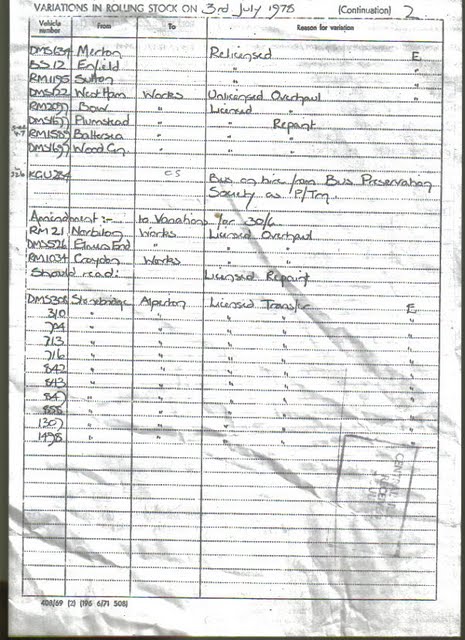 VARIATIONS IN ROLLING STOCK ON 3rd July 1978 (Continuation) 2
Vehicle number From To Reason for variation
Merton Relicensed E
BS 12 Enfield " "
RM1195 Sutton " "
DMS622 West Ham Works Unlicensed Overhaul "
Bow " Licensed "
Plumstead " " Repaint
RM1585 Battersea " " "
Wood Gn. " " "
KGU284 CS Bus on hire from Bus Preservation
Society as P/Trn.
Amendment :- to Variations for 30/6
RM121 Norbiton Works Licensed Overhaul
Elmers End " " "
RM1034 Croydon Works " "
Should read: Licensed Repaint
DMS306 Stonebridge Alperton Licensed Transfer E
310 " " " " "
704 " " " " "
713 " " " " "
716 " " " " "
842 " " " " "
843 " " " " "
" " " " "
888 " " " " "
" " " " "
1498 " " " " "
CENTRAL
408/69 (2) (196 6/71 508)